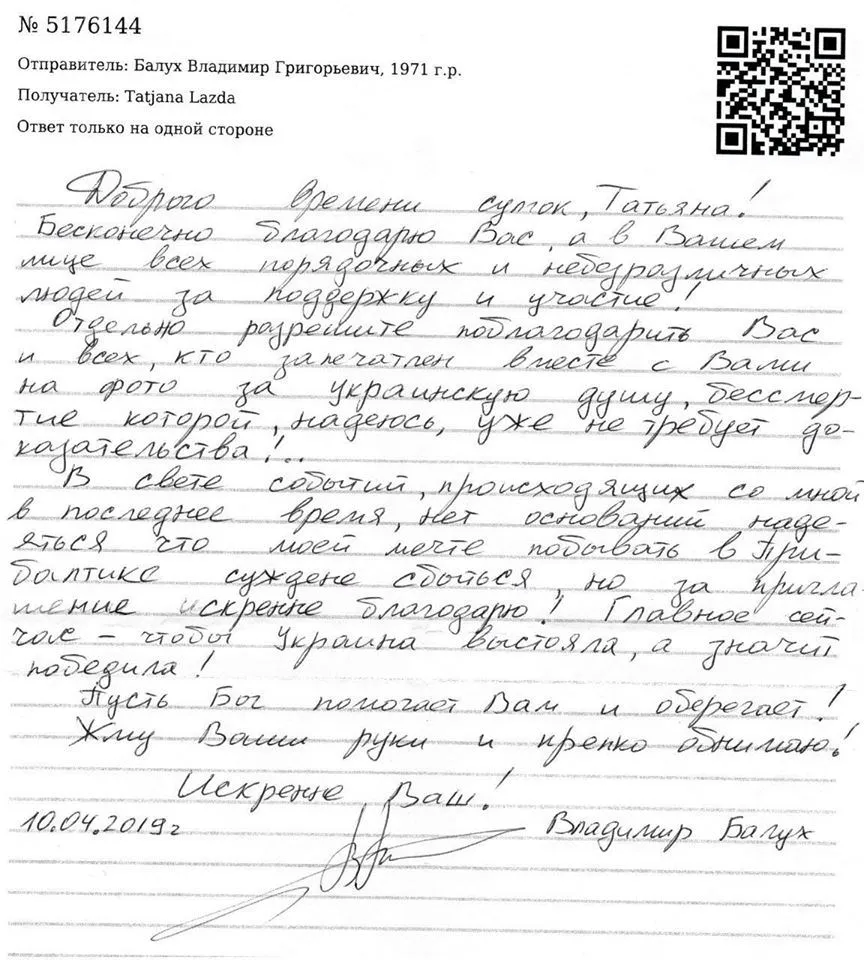 № 5176144
Отправитель: Балух Владимир Григорьевич, 1971 г.р.
Получатель: Tatjana Lazda
Ответ только на одной стороне
Доброго времени суток, Татьяна!
Бесконечно благодарю Вас, а в Вашем
лице всех порядочных и небезразличных
людей за поддержку и участие!
Отдельно разрешите поблагодарить Вас
и всех, кто запечатлен вместе с Вами
на фото за украинскую душу, бессмер-
тие которой, надеюсь, уже не требует до-
казательства!..
В свете событий, происходящих со мной
в последнее время, нет оснований наде-
яться что моей мечте побывать в При-
балтике суждене сбыться, но за пригла-
шение искренне благодарю! Главное сей-
час – чтобы Украина выстояла, а значит
победила!
Пусть Бог помогает Вам и оберегает!
Жму Ваши руки и крепко обнимаю!
Искренне Ваш!
10.04.2019г Владимир Балух